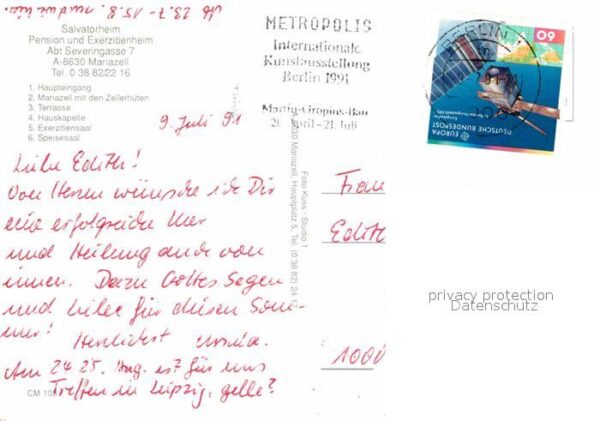 Ab 23.7 - 15.8.
Salvatorheim
Pension und Exerzitienheim
Abt Severingasse 7
A-8630 Mariazell
Tel. 0 38 82/22 16
1. Haupteingang
2. Mariazell mit den Zellerhüten
3. Terrasse
4. Hauskapelle
5. Exerzitiensaal
6. Speisesaal
METROPOLIS
Internationale
Kunstausstellung
Berlin 1991
Martin-Gropius-Bau
20. April - 21. Juli
BERLIN
60
EUROPA
DEUTSCHE BUNDESPOST
9. Juli 91
Liebe Edith!
Von Herzen wünsche ich Dir
eine erfolgreiche Kur
und Heilung auch von
innen. Dazu Gottes Segen
und Liebe für diesen Som-
mer! Herzlichst
Am 24 25. Aug. es? für uns
Treffen in Leipzig, gelle?
Foto Kuss - Studio 1
A-8630 Mariazell, Hauptplatz 5, Tel. (0 38 82) 24 12
CM 108
Frau
Edith
1000
privacy protection
Datenschutz